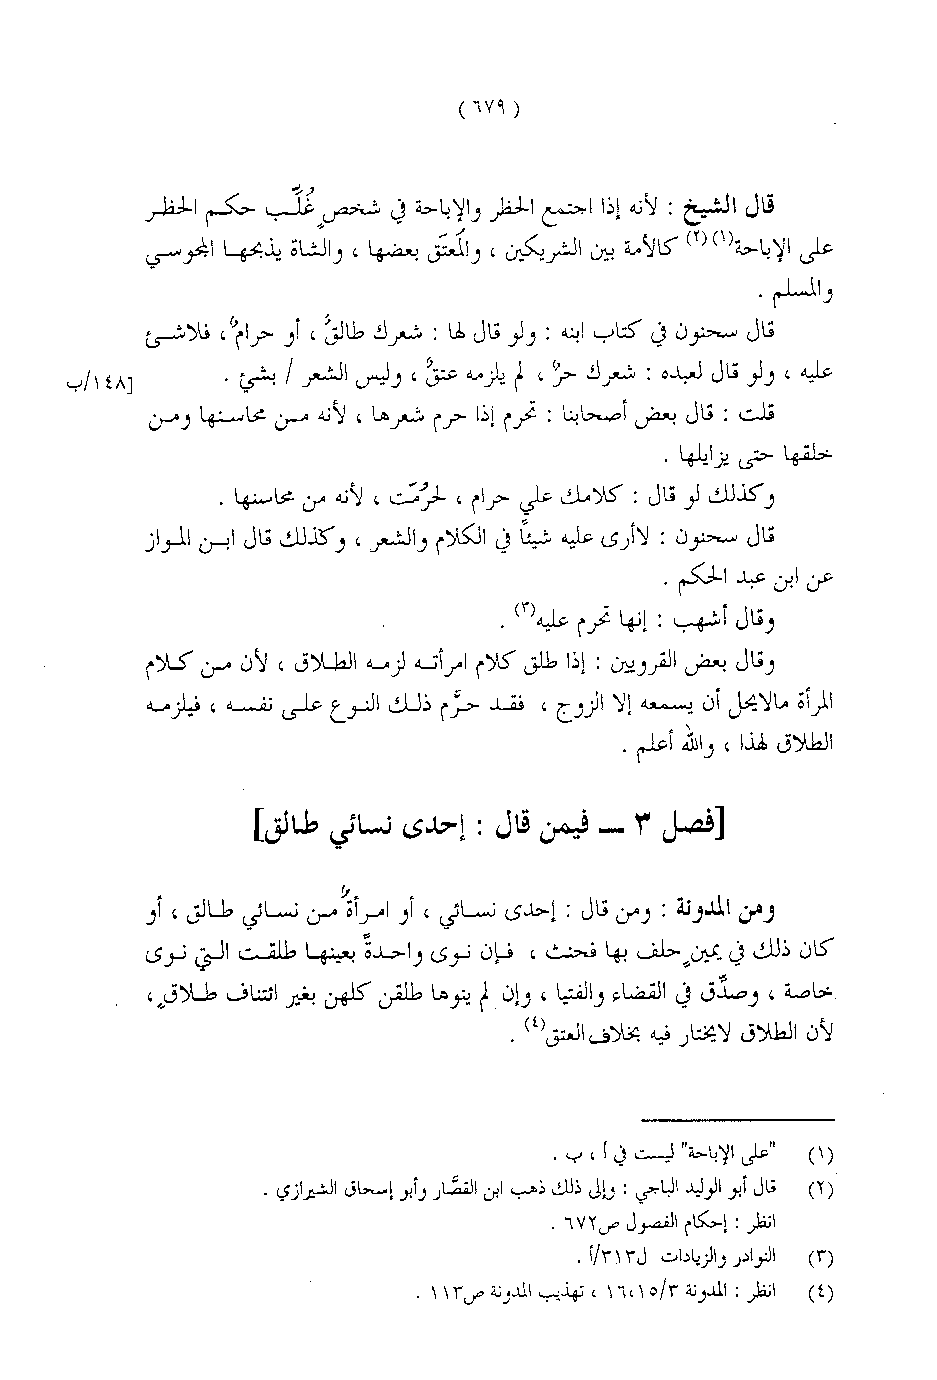 ( ٦٧٩ )
قال الشيخ : لأنه إذا اجتمع الحظر والإباحة في شخصٍ غُلِّب حكم الحظر
على الإباحة(١)(٢) كالأمة بين الشريكين ، والمُعتَق بعضها ، والشاة يذبحها المجوسي
والمسلم .
قال سحنون في كتاب ابنه : ولو قال لها : شعرك طالقٌ ، أو حرامٌ ، فلاشئ
عليه ، ولو قال لعبده : شعرك حرٌ ، لم يلزمه عتقٌ ، وليس الشعر / بشئ .
[١٤٨/ب
قلت : قال بعض أصحابنا : تحرم إذا حرم شعرها ، لأنه من محاسنها ومن
خلقها حتى يزايلها .
وكذلك لو قال : كلامك علي حرام ، لحرُمت ، لأنه من محاسنها .
قال سحنون : لاأرى عليه شيئاً في الكلام والشعر ، وكذلك قال ابن المواز
عن ابن عبد الحكم .
وقال أشهب : إنها تحرم عليه(٣) .
وقال بعض القرويين : إذا طلق كلام امرأته لزمه الطلاق ، لأن من كلام
المرأة مالايحل أن يسمعه إلا الزوج ، فقد حرَّم ذلك النوع على نفسه ، فيلزمه
الطلاق لهذا ، والله أعلم .
[فصل ٣ ــ فيمن قال : إحدى نسائي طالق]
ومن المدونة : ومن قال : إحدى نسائي ، أو امرأةٌ من نسائي طالق ، أو
كان ذلك في يمينٍ حلف بها فحنث ، فإن نوى واحدةً بعينها طلقت التي نوى
خاصة ، وصدِّق في القضاء والفتيا ، وإن لم ينوها طلقن كلهن بغير ائتناف طلاقٍ ،
لأن الطلاق لايختار فيه بخلاف العتق(٤) .
(١) "على الإباحة" ليست في أ ، ب .
(٢) قال أبو الوليد الباجي : وإلى ذلك ذهب ابن القصَّار وأبو إسحاق الشيرازي .
انظر : إحكام الفصول ص٦٧٢ .
(٣) النوادر والزيادات ل٣١٣/أ .
(٤) انظر : المدونة ١٦،١٥/٣ ، تهذيب المدونة ص١١٣ .